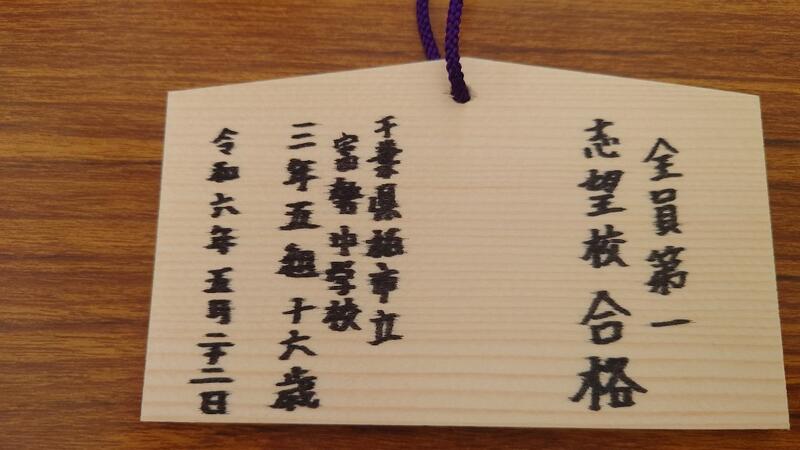 全員第一
志望校合格
千葉県柏市立
富勢中学校
三年五組十六歳
令和六年五月二十二日